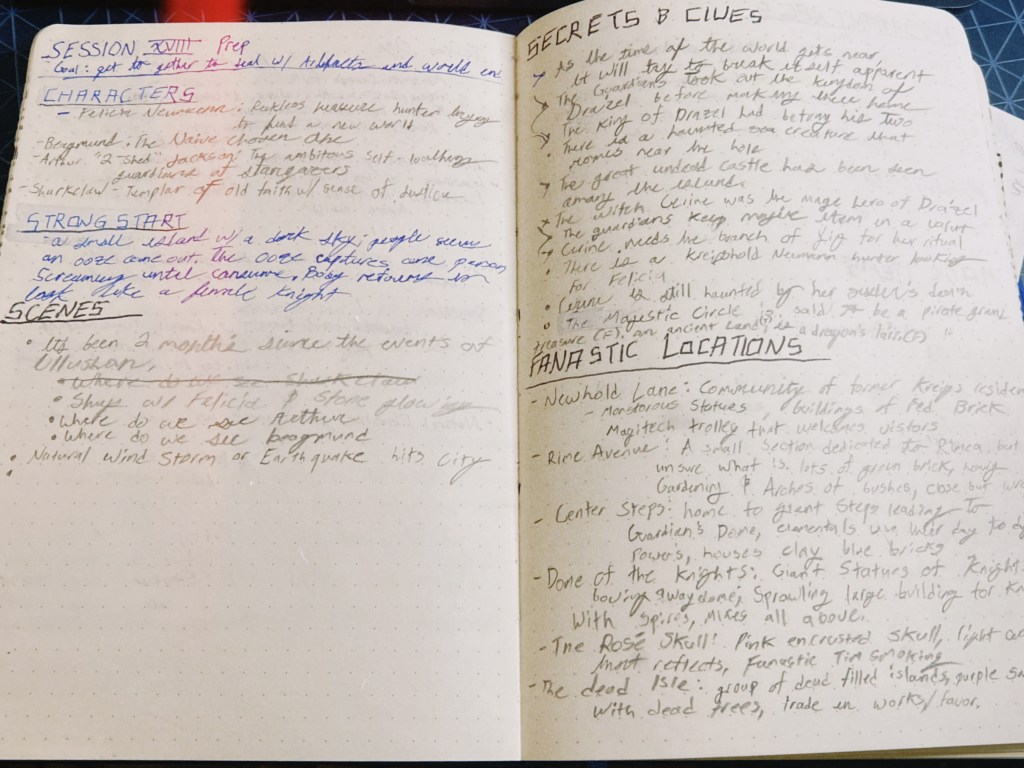 SESSION XVIII Prep
Goal: get to gether to deal w/ Artifacts and world en
CHARACTERS
- Felicia Neumann: Rekless treasure hunter trying
to find a new world
- Bergmund: The Naive chosen one
- Arthur "2-Shed" Jackson: The ambitous self-loathing
guardians of stargazers
- Sharkclaw - Templar of old faith w/ sense of Justice
STRONG START
- a small island w/ a dark sky; people seem
an ooze come out. the ooze captures one person
Screaming until consume. Body returns in
look like a female knight
SCENES
• Its been 2 months since the events of
Ullushan.
• Where do we see Sharkclaw
• Ships w/ Felicia & Stone glowing
• Where do we see Arthur
• Where do we see bergmund
• Natural Wind Storm or Earthquake hits City
•
SECRETS & CLUES
As the time of the world gets near,
it will try to break itself apparent
The Guardians took out the kingdom of
Draizel before making there home
The King of Drazel had betray his two
There is a haunted sea creature that
romes near the hole
The great undead castle has been seen
among the island.
The Witch Cerine was the mage hero of Draizel
The guardians keep magic item in a vault
Cerine needs the branch of Yig for her ritual
• There is a Kreighold Neumann hunter looking
for Felicia
• Cerine is still haunted by her sister's death
• The Majestic Circle is said to be a pirate grand
treasure (F), an ancient land, is a dragon's lair (F)
FANASTIC LOCATIONS
- Newhold Lane: Community of former Kreigs residen
- Monstorous Statues, buildings of Red Brick
Magitech trolley that welcomes visitors
- Rine Avenue: A small section dedicated to Rinea, but
unsure what is. lots of green brick, heavy
Gardening & Arches of bushes, close but
- Center Steps: home to giant steps leading to
Guardian's Dome, elementals use their day to d
powers, houses clay blue bricks
- Dome of the Knights: Giant Statues of Knight
bowing away dome, Sprawling large building for Kn
With spires, mixes all above.
- The Rosé Skull: Pink encrusted skull, light
moot reflects, Fanastic Tim smoking
- The dead Isle: group of dead filled islands, purple
with dead trees, trade in works/favor.